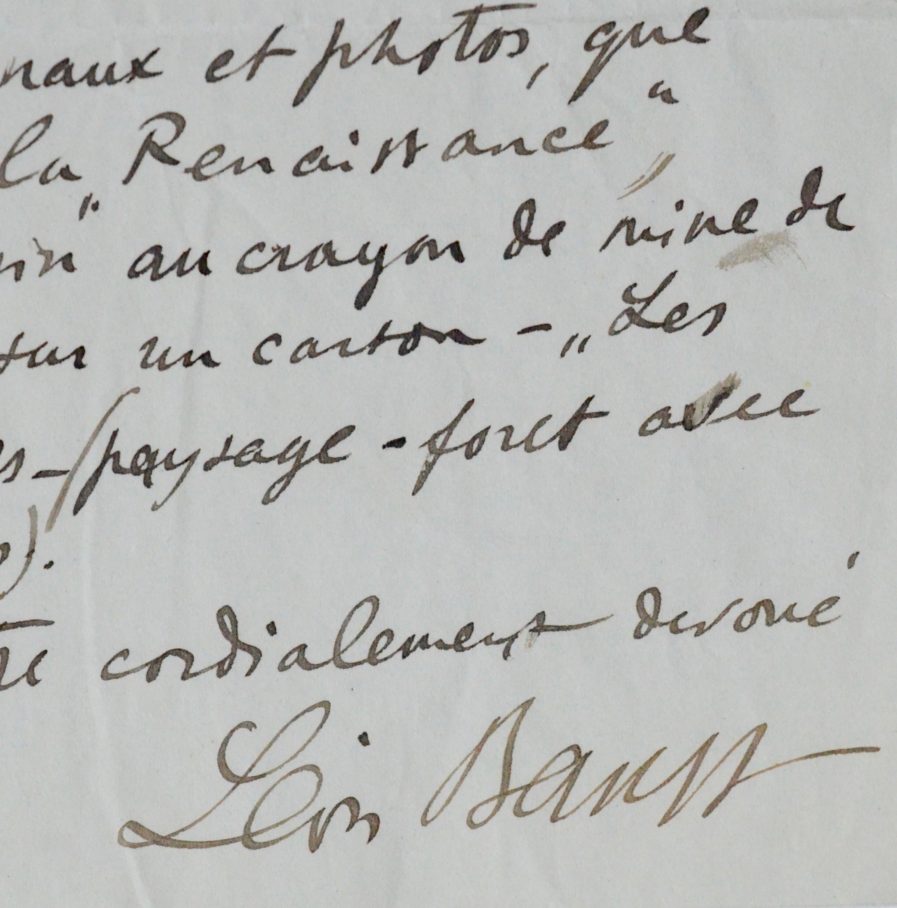 naux et photos, que
la „Renaissance“,
sin“ au crayon de mine de
sur un carton - „Les
s - (paysage - foret avec
e).
tre cordialement devoué
Léon Bakst